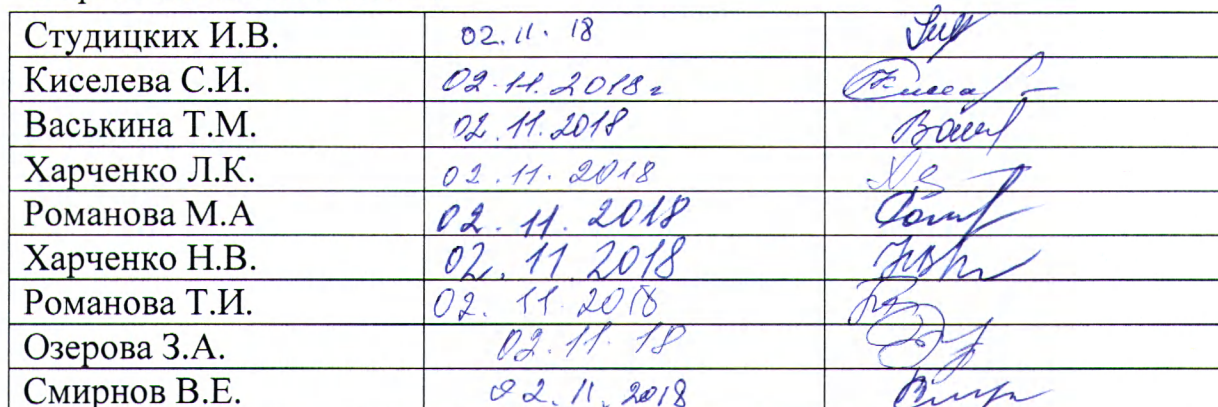 Студицких И.В. 02.11.18
Киселева С.И. 02.11.2018г
Васькина Т.М. 02.11.2018
Харченко Л.К. 02.11.2018
Романова М.А 02.11.2018
Харченко Н.В. 02.11 2018
Романова Т.И. 02.11.2018
Озерова З.А. 02.11.18
Смирнов В.Е. 02.11.2018